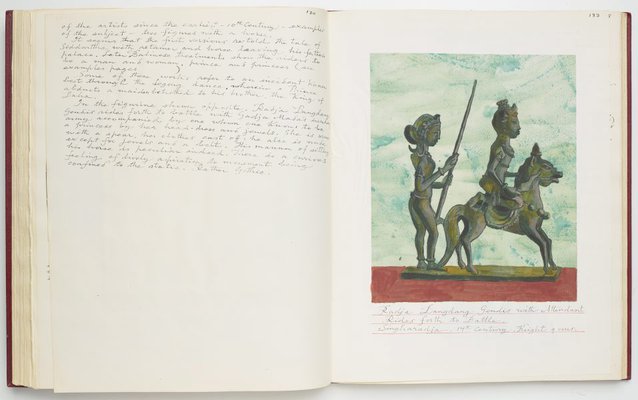 130
of the artists since the earliest - 16th Century, examples
of the subject, two figures with a horse.
It seems that the first versions retold the tale of
Siddartha, with retainer and horse, leaving his father's
palace. Later Balinese treatments show the riders to
be a man and woman, prince and princess (see
examples pages
Some of these works refer to an ancient
lost through the Legong dance, wherein a Prince
abducts a maiden betrothed to his brother, the King of
In the figurine shown opposite, Radja Langdang
Gendis rides forth to battle with Gadja Mada's
army accompanied by one whom is shown to be
a princess by her head-dress and jewels. She
with a spear, though most of the is nude
except for jewels and a The manner of sitting
his horse is peculiar indeed. There is a curious
feeling of lively aspiration to movement being
confined to the static. Rather Gothic.
Radja Langdang Gendis with Attendant
Rides forth to Battle.
Singharadja. 19th Century. Height 9 inches.